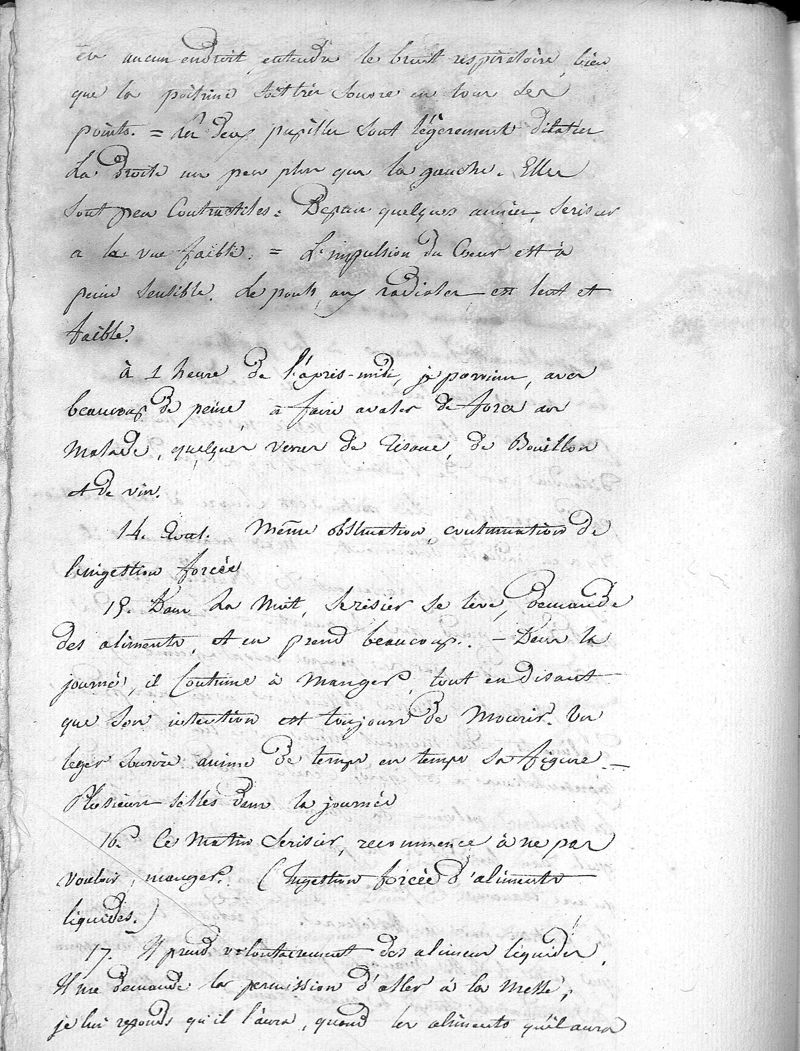 en aucun endroit, entendre le bruit respiratoire, bien
que la poitrine soit très sonore en tous ses
points. = Les deux pupilles sont légèrement dilatées
La droite un peu plus que la gauche. Elles
sont peu contractiles = Depuis quelques années, Serisier
a la vue faible. = L'impulsion du Coeur est à
peine sensible. Le pouls aux radiales est lent et
faible.
à 1 heure de l'après-midi, je parviens, avec
beaucoup de peine à faire avaler de force au
Malade, quelques verres de tisane, de Bouillon
et de vin.
14. Même obstination, continuation de
l'ingestion forcée
15. Dans La Nuit, Serisier se lève, demande
des aliments, et en prend beaucoup. — Dans la
journée, il continue à manger, tout en disant
que son intention est toujours de Mourir. Un
leger sourire anime de temps en temps sa figure —
Plusieurs selles dans la journée
16. Ce Matin Serisier, recommence à ne pas
vouloir manger. (Ingestion forcée d'aliments
liquides.)
17. Il prend volontairement des alimens liquides.
Il me demande la permission d'aller à la Messe;
je lui reponds qu'il l'aura, quand les aliments qu'il aura